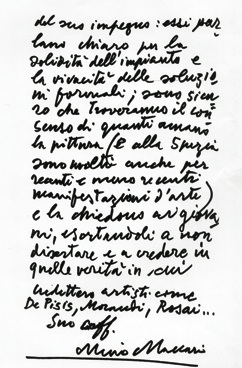 del suo impegno: essi par
lano chiaro per la
solidità dell'impianto e
la vivacità delle soluzio
ni formali; sono sicu
ro che troveranno il con
senso di quanti amano
la pittura (e alla Spezia
sono molti anche per
recenti e meno recenti
manifestazioni d'arte)
e la chiedono ai giova
ni, esortandoli a non
disertare e a credere in
quelle verità in cui
credettero artisti come
De Pisis, Morandi, Rosai...
Suo aff.
Mino Maccari